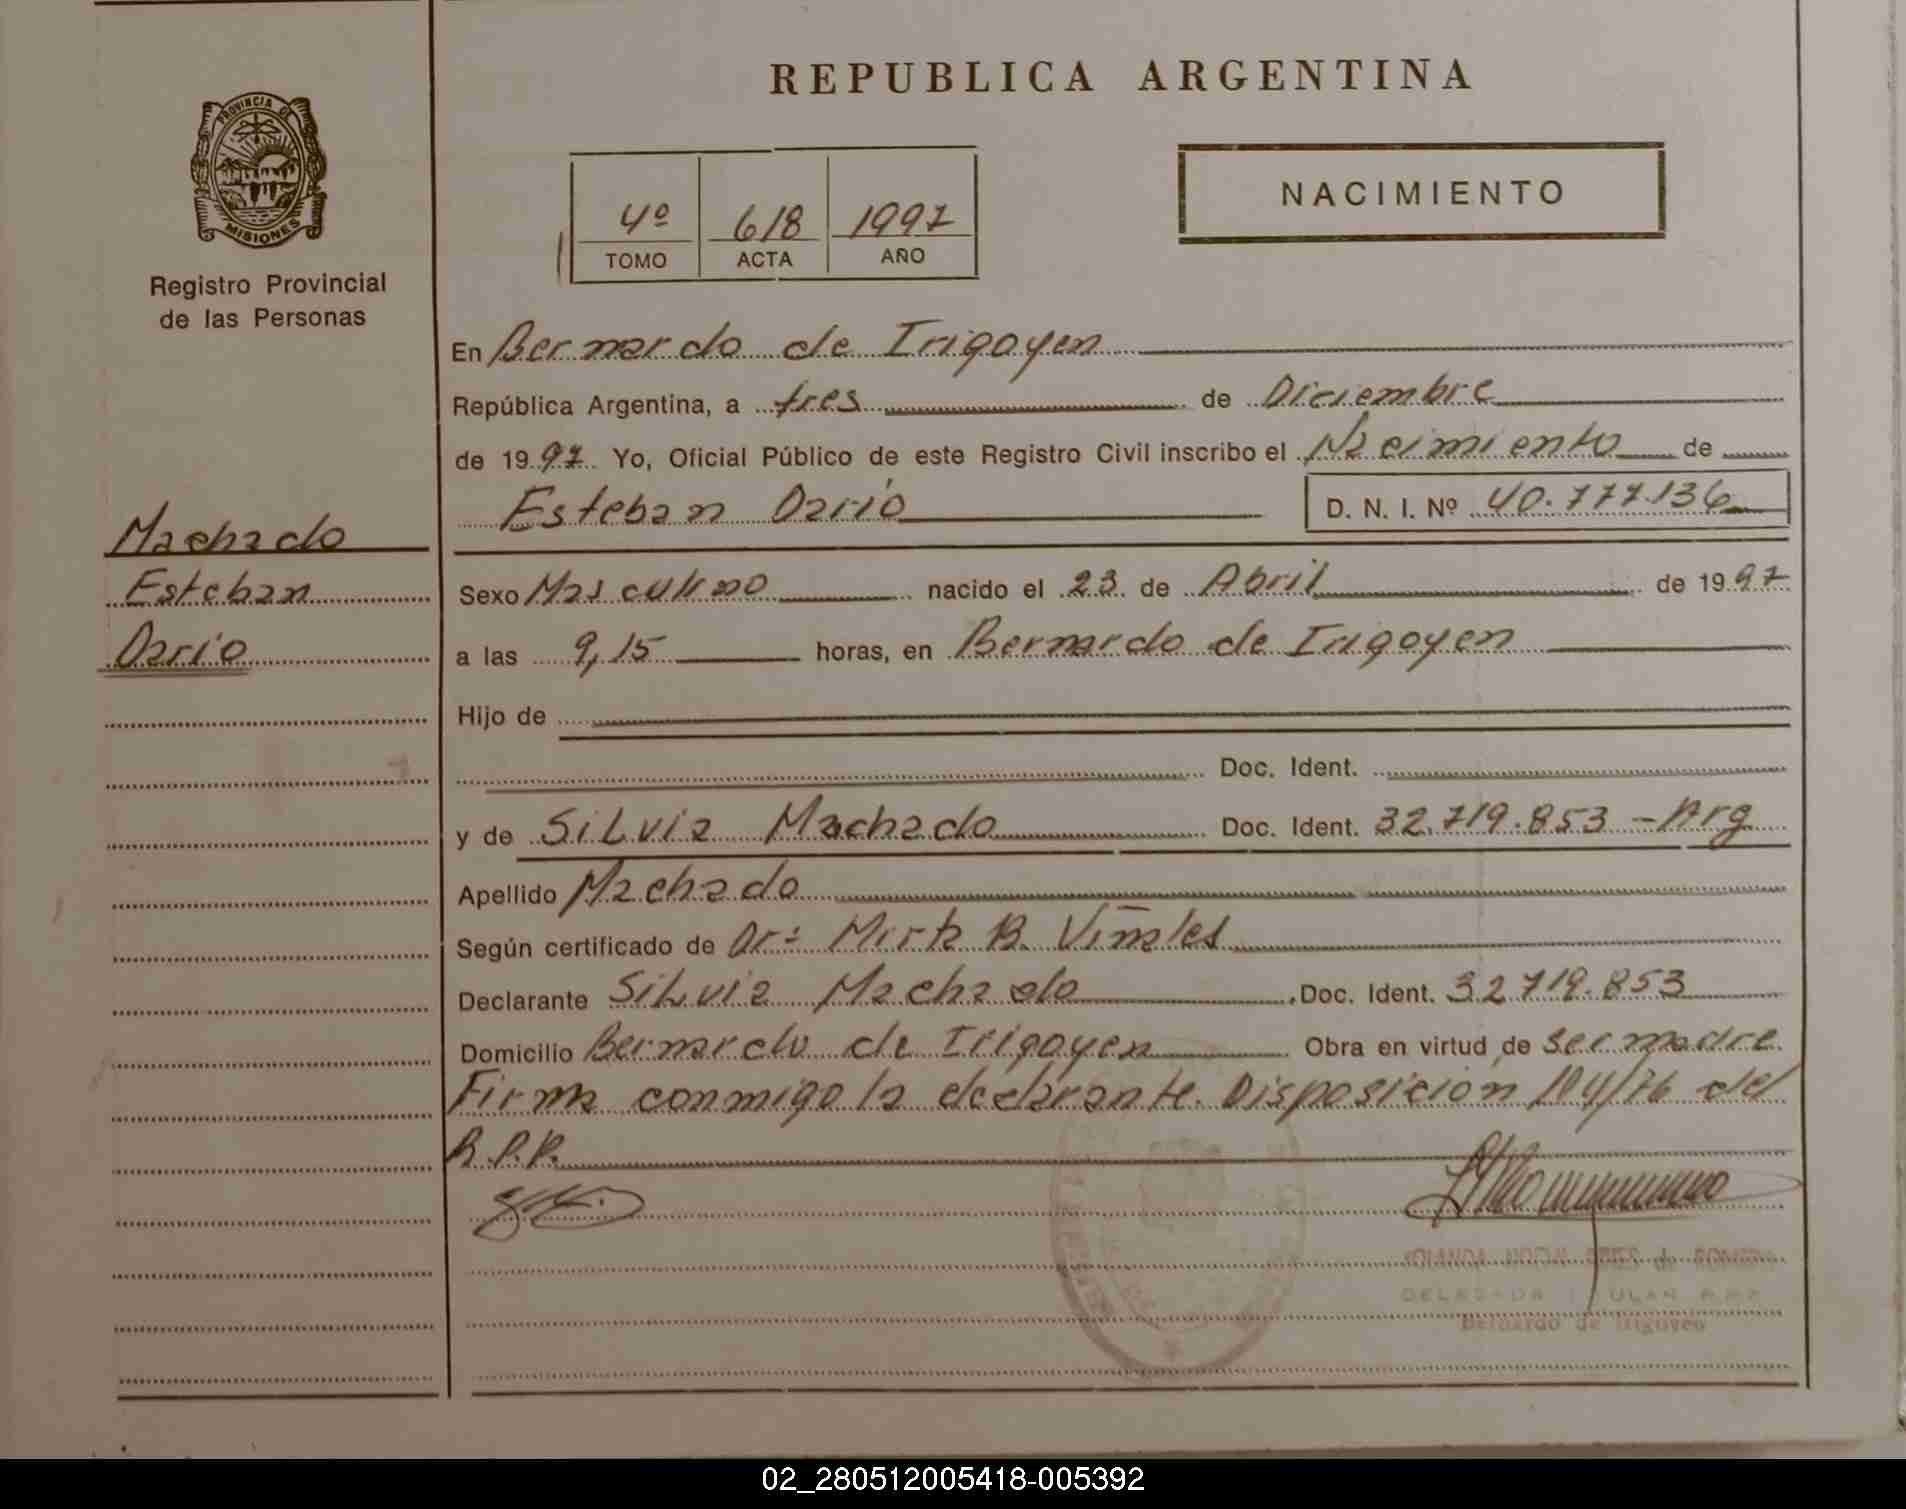 REPUBLICA ARGENTINA
PROVINCIA DE
MISIONES
Registro Provincial
de las Personas
NACIMIENTO
4º 618 1997
TOMO ACTA AÑO
En Bernardo de Irigoyen
República Argentina, a tres de Diciembre
de 1997 Yo, Oficial Público de este Registro Civil inscribo el Nacimiento de
Esteban Darío D. N. I. Nº 40.777.136
Machado
Esteban
Darío
Sexo Masculino nacido el 23 de Abril de 1997
a las 9,15 horas, en Bernardo de Irigoyen
Hijo de
Doc. Ident.
y de Silvia Machado Doc. Ident. 32.719.853 - Arg
Apellido Machado
Según certificado de Dr: Mirta B. Viñales
Declarante Silvia Machado Doc. Ident. 32719.853
Domicilio Bernardo de Irigoyen Obra en virtud de ser madre
Firma conmigo la declarante. Disposición 104/76 del
R.P.P.
Bernardo de Irigoyen
02_280512005418-005392